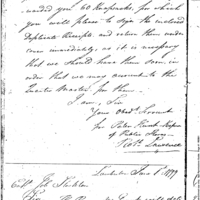 warded you 60 Knapsacks, for which
you will please to sign the inclosed
Duplicate Receipts, and return them under
cover immediately, as it is necessary
that we should have them soon, in
order that we may account to the
Quarter Master for them.
I am, Sir
Your Obedt. Servant
for Peter Keeper
of Public Stores
London June 1st 1799
Sir